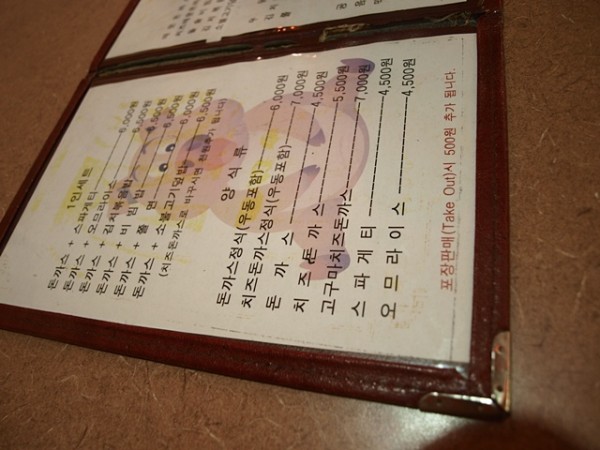 1인세트
돈까스 + 스파게티 6,000원
돈까스 + 오므라이스 6,000원
돈까스 + 김치볶음밥
돈까스 + 비빔밥 6,000원
돈까스 + 쫄면 6,000원
돈까스 + 소불고기덮밥 6,500원
(치즈돈까스로 바꾸시면 천원추가 됩니다)
양 식 류
돈까스정식(우동포함) 6,000원
치즈돈까스정식(우동포함) 7,000원
돈 까 스 4,500원
치 즈 돈 까 스 5,500원
고구마치즈돈까스 7,000원
스 파 게 티 4,500원
오 므 라 이 스 4,500원
포장판매(Take Out)시 500원 추가 됩니다.